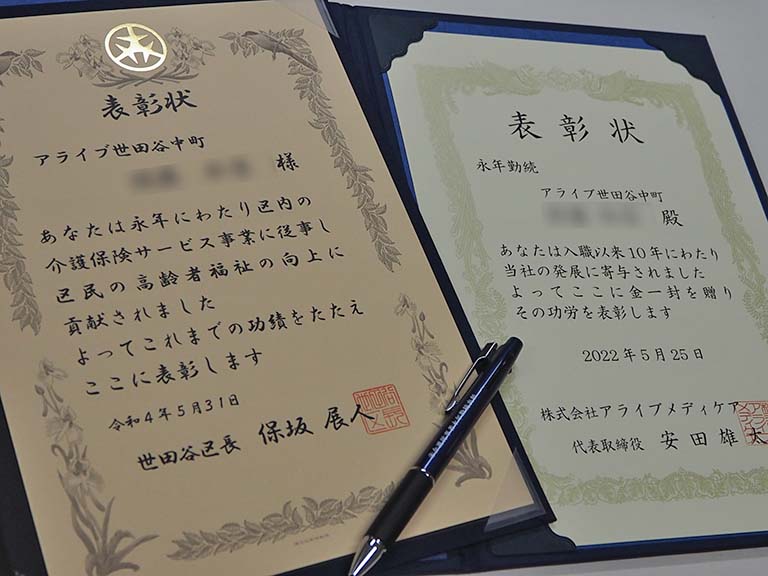 表彰状
アライブ世田谷中町
様
あなたは永年にわたり区内の
介護保険サービス事業に従事し
区民の高齢者福祉の向上に
貢献されました
よってこれまでの功績をたたえ
ここに表彰します
令和4年5月31日
世田谷区長 保坂 展人
表彰状
永年勤続
アライブ世田谷中町
殿
あなたは入職以来10年にわたり
当社の発展に寄与されました
よってここに金一封を贈り
その功労を表彰します
2022年5月25日
株式会社アライブメディケア
代表取締役 安田雄太